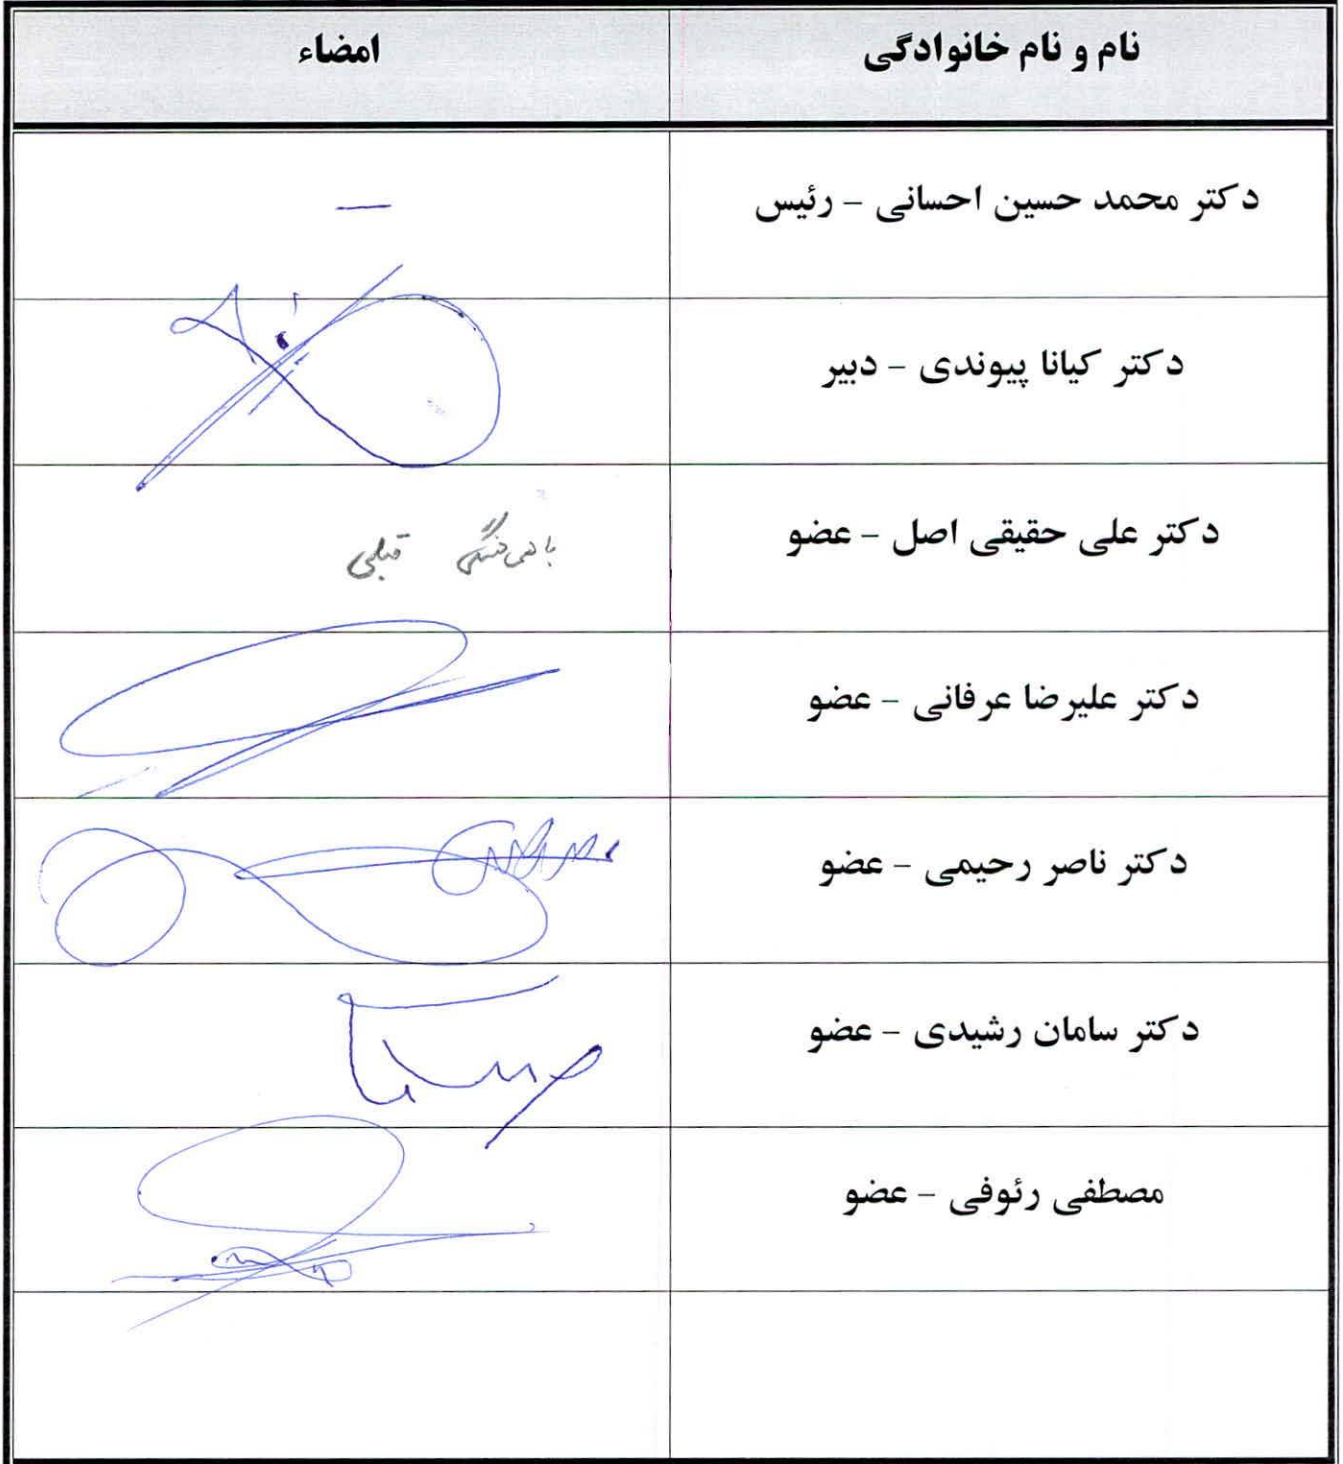 نام و نام خانوادگی امضاء
دکتر محمد حسین احسانی - رئیس –
دکتر کیانا پیوندی - دبیر
دکتر علی حقیقی اصل - عضو با هماهنگی قبلی
دکتر علیرضا عرفانی - عضو
دکتر ناصر رحیمی - عضو
دکتر سامان رشیدی - عضو
مصطفی رئوفی - عضو